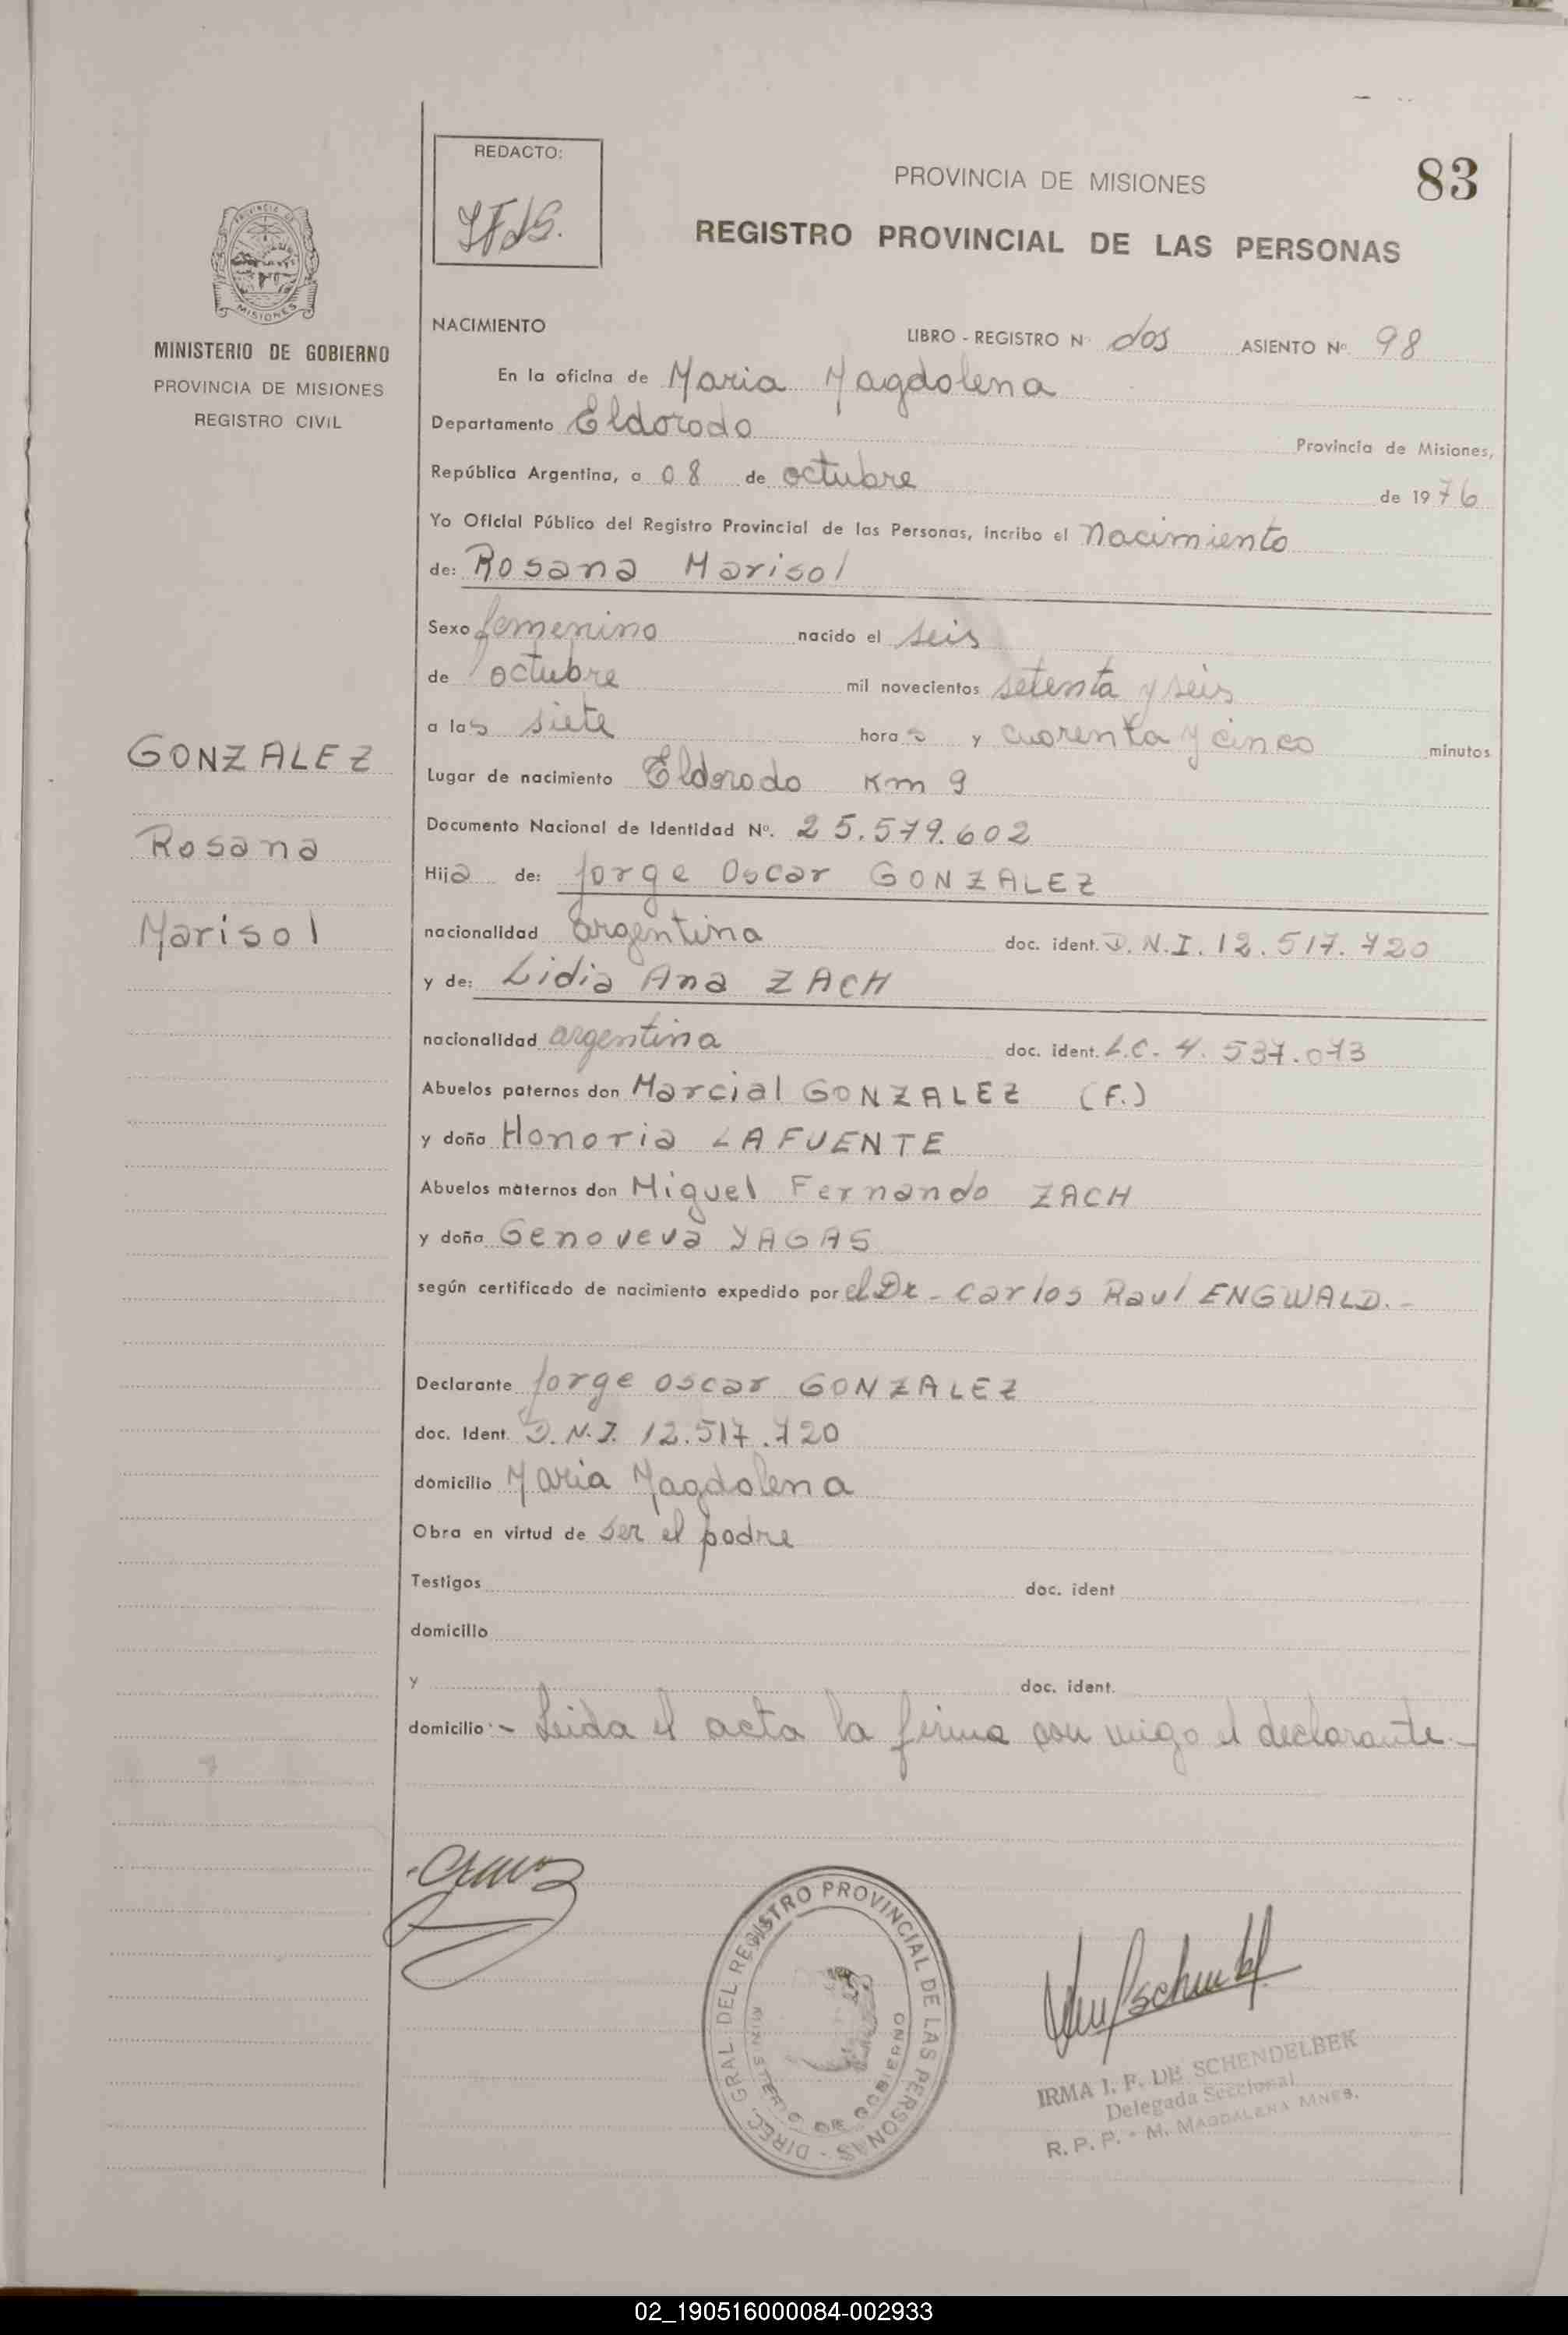 REDACTO:
PROVINCIA DE MISIONES
83
REGISTRO PROVINCIAL DE LAS PERSONAS
MISIONES
MINISTERIO DE GOBIERNO
PROVINCIA DE MISIONES
REGISTRO CIVIL
GONZALEZ
Rosana
Marisol
NACIMIENTO LIBRO - REGISTRO N° dos ASIENTO N° 98
En la oficina de Maria Magdalena
Departamento Eldorado Provincia de Misiones,
República Argentina, a 08 de octubre de 1976
Yo Oficial Público del Registro Provincial de las Personas, incribo el nacimiento
de: Rosana Marisol
Sexo femenino nacido el seis
de octubre mil novecientos setenta y seis
a las siete horas y cuarenta y cinco minutos
Lugar de nacimiento Eldorado Km 9
Documento Nacional de Identidad N°. 25.579.602
Hija de: Jorge Oscar GONZALEZ
nacionalidad argentina doc. ident. D.N.I. 12.517.720
y de: Lidia Ana ZACH
nacionalidad argentina doc. ident. L.C. 4.537.073
Abuelos paternos don Marcial GONZALEZ (F.)
y doña Honoria LAFUENTE
Abuelos maternos don Miguel Fernando ZACH
y doña Genoveva YAGAS
según certificado de nacimiento expedido por el Dr - Carlos Raul ENGWALD.-
Declarante Jorge Oscar GONZALEZ
doc. Ident. D.N.I. 12.517.720
domicilio Maria Magdalena
Obra en virtud de ser el padre
Testigos doc. ident
domicilio
y doc. ident.
domicilio - Leida el acta la firma con migo el declarante.-
DIREC. GRAL. DEL REGISTRO PROVINCIAL DE LAS PERSONAS -
MINISTERIO DE GOBIERNO
IRMA I. F. DE SCHENDELBEK
Delegada Seccional
R. P. P. - M. MAGDALENA MNES.
02_190516000084-002933